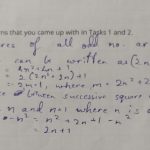 rns that you came up with in Tasks 1 and 2.
res of all odd no. ar
can be written as (2n
= 4n²+4n+1
= 2(2n²+2n)+1
= 2m+1, where m = 2n²+2
ce between successive square
n and n+1 where n is
-n² = n²+2n+1-n²
= 2n+1